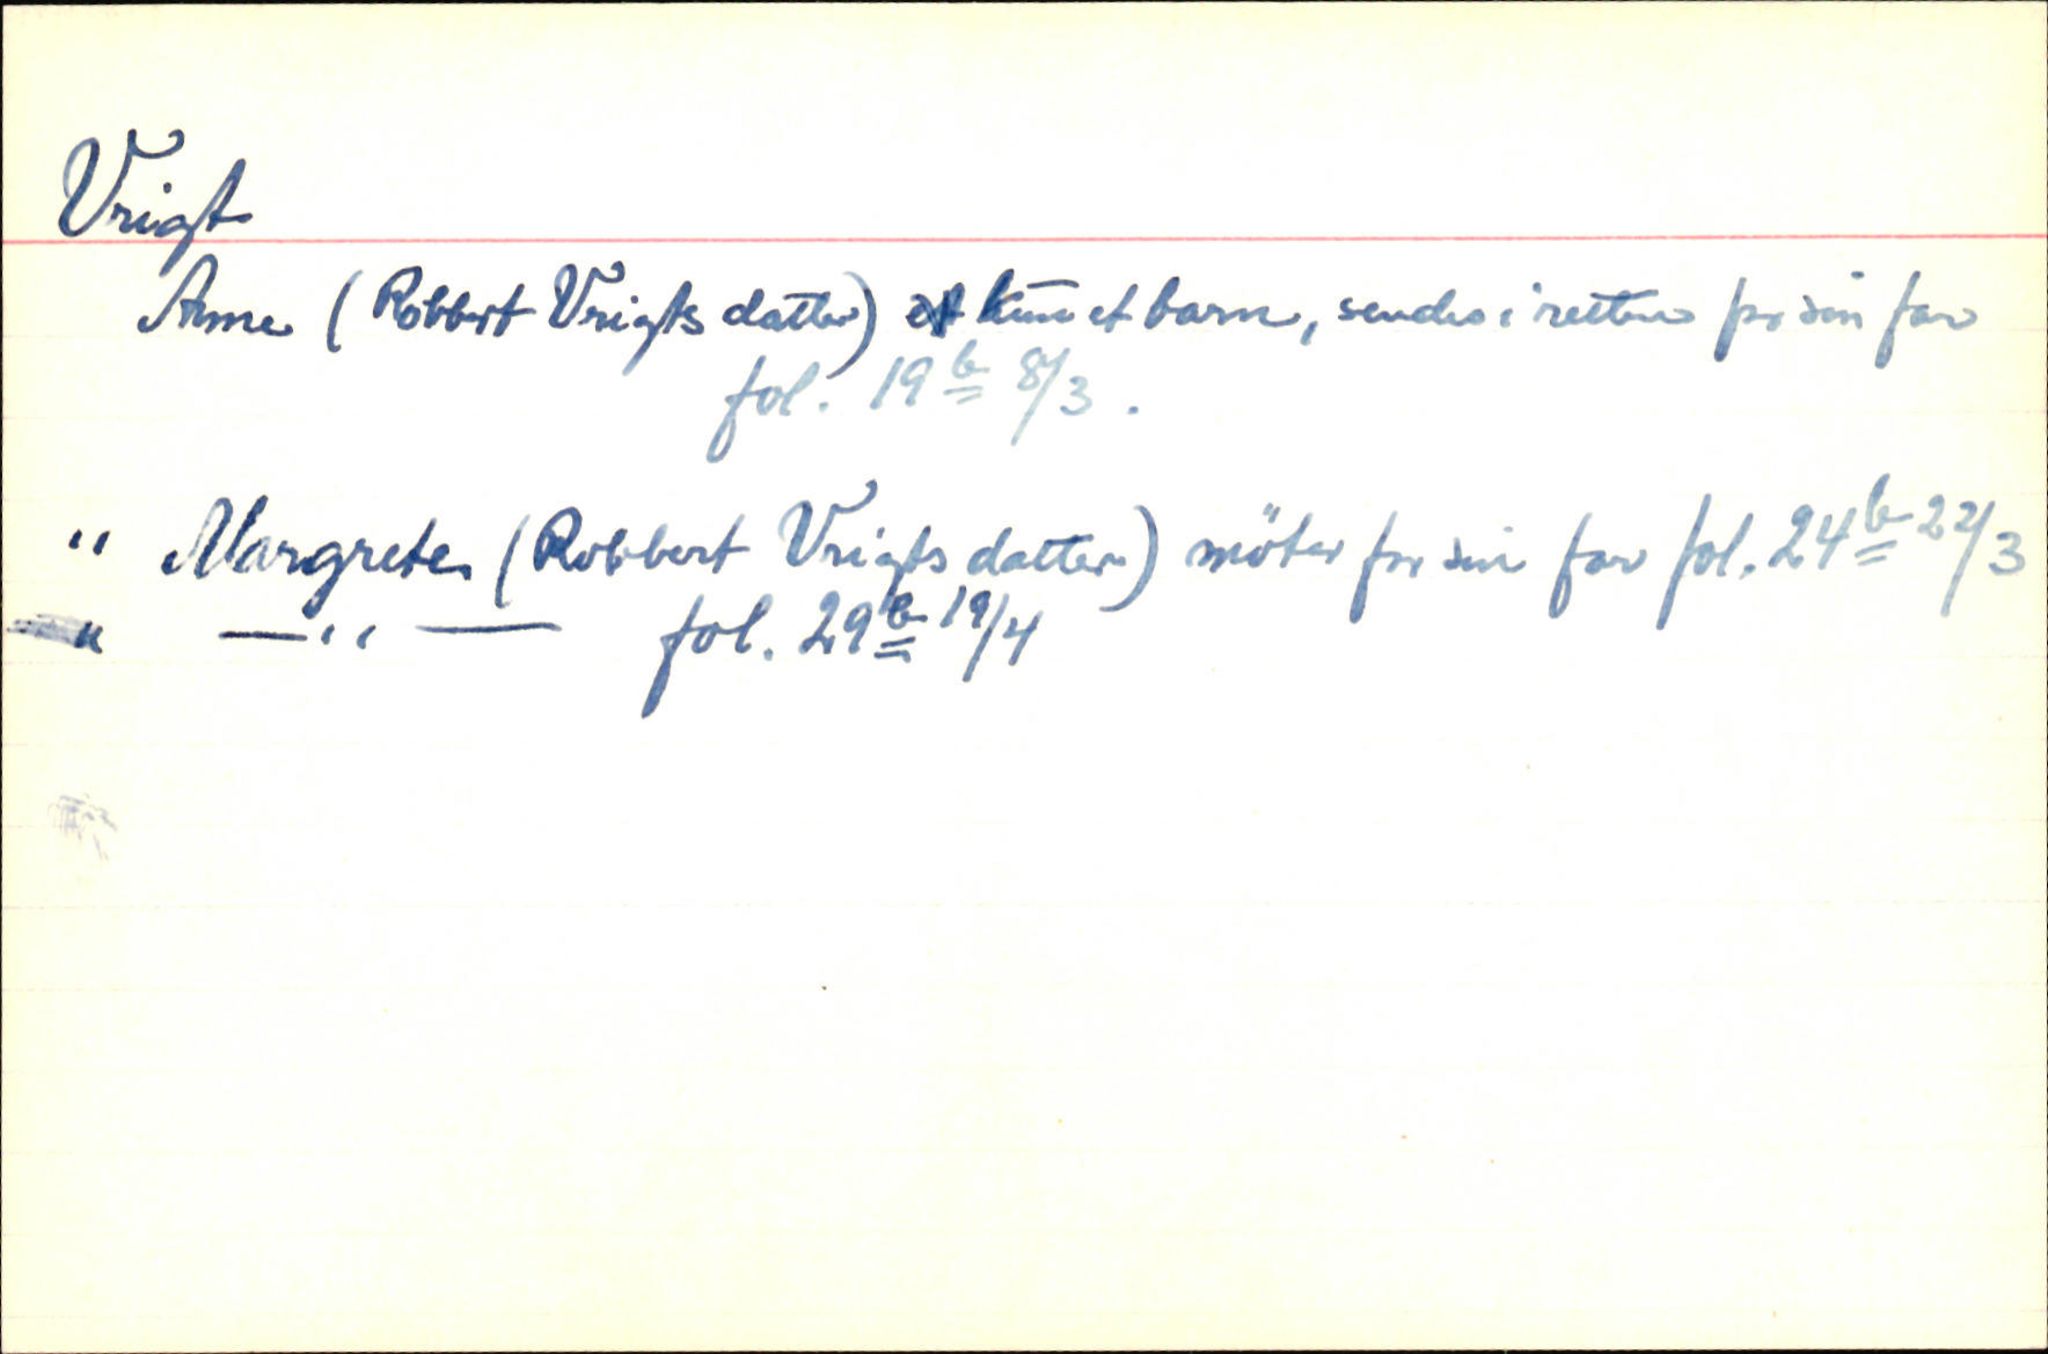 Vrigt
Anne (Robbert Vrigts datter) kun et barn, sendes i retten for sin far
fol. 19b 8/3.
" Margrete (Robbert Vrigts datter) möter for sin far fol. 24b 22/3
" —"— fol. 29b 19/4